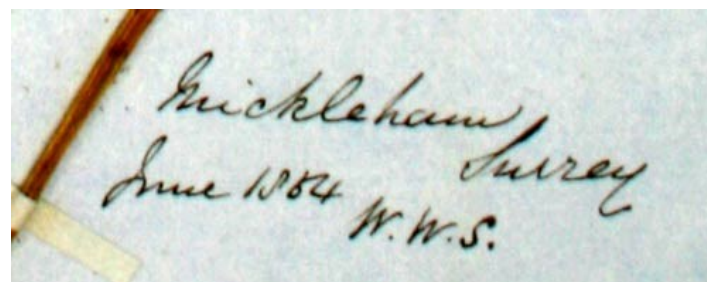 Mickleham
Surrey
June 1864
W.W.S.